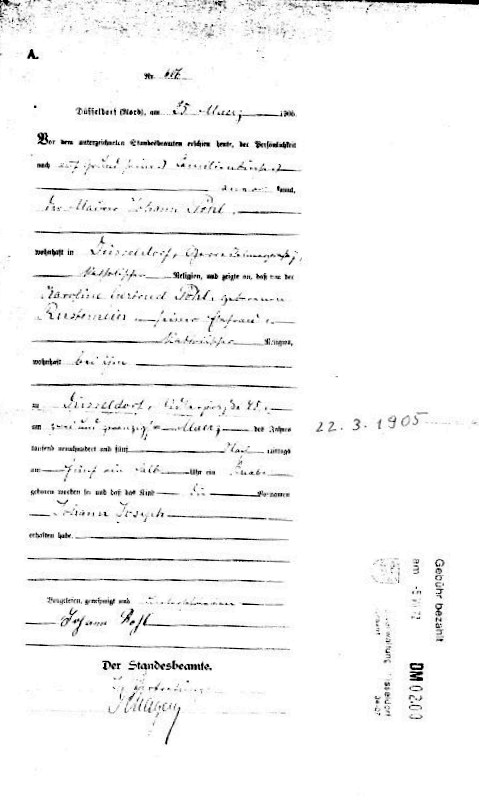 A.
Nr. 617
Düsseldorf (Nord), am 25 Maerz 190
Vor dem unterzeichneten Standesbeamten erschien heute, der Persönlichkeit
nach auf Grund seines Familienbuches
kannt,
der Maurer Johann Pohl
wohnhaft in Düsseldorf,
katholischer Religion, und zeigte an, daß von der
Karoline Gertrud Pohl, geborenen
seiner Ehefrau
katholischer Religion,
wohnhaft bei ihm
zu Düsseldorf, 45
am zwei und zwanzigsten Maerz des Jahres
tausend neunhundert und fünf Nachmittags
um fünf ein halb Uhr ein Knabe
geboren worden sei und daß das Kind die Vornamen
Johann Joseph
erhalten habe.
22.3.1905
Vorgelesen, genehmigt und unterschrieben
Johann Pohl
Der Standesbeamte.
In Vertretung
Gebühr bezahlt
am
DM 0200